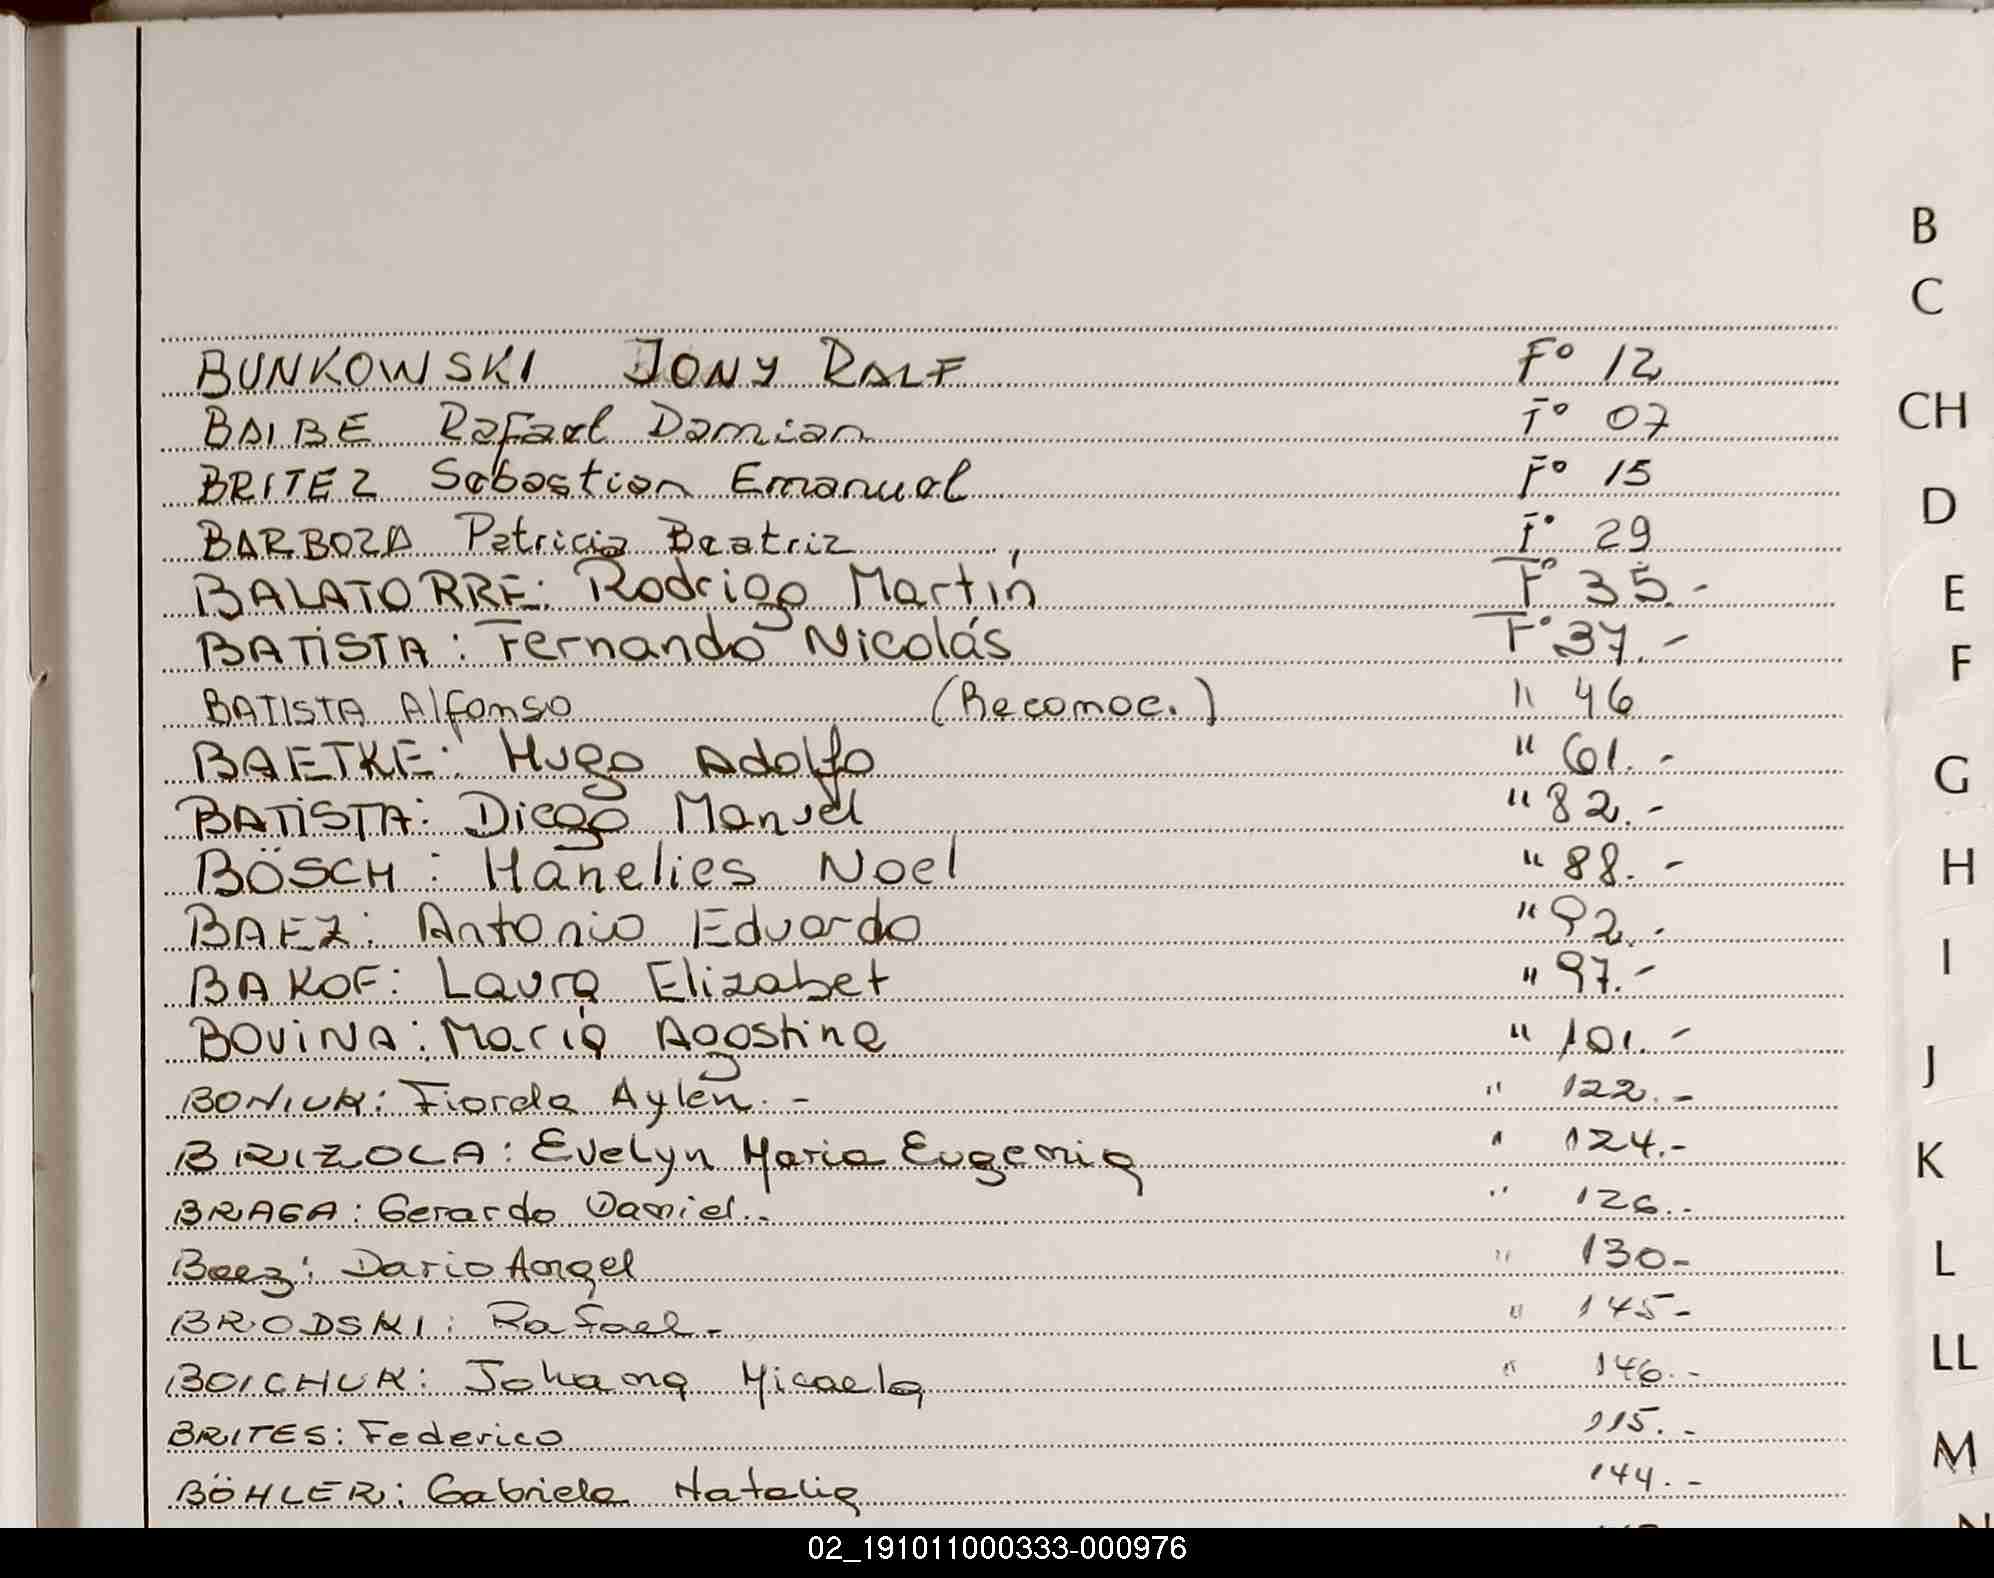 BUNKOWSKI JONY RALF F° 12
BAIBE Rafael Damian F° 07
BRITEZ Sebastian Emanuel F° 15
BARBOZA Patricia Beatriz F° 29
BALATORRE: Rodrigo Martín F° 35.-
BATISTA: Fernando Nicolás F° 37.-
BATISTA Alfonso (Reconoc.) " 46
BAETKE: Hugo Adolfo " 61.-
BATISTA: Diego Manuel " 82.-
BÖSCH: Hanelies Noel " 88.-
BAEZ: Antonio Eduardo " 92.-
BAKOF: Laura Elizabet " 97.-
BOVINA: María Agostina " 101.-
BONIUK: Fiorela Aylén.- " 122.-
BRIZOLA: Evelyn Maria Eugenia " 124.-
BRAGA: Gerardo Daniel.- " 126.-
Baez: Dario Angel " 130-
BRODSKI: Rafael- " 145-
BOICHUK: Johana Micaela " 146.-
BRITES: Federico 115.-
BÖHLER: Gabriela Natalia 144.-
B
C
CH
D
E
F
G
H
I
J
K
L
LL
M
N
02_191011000333-000976